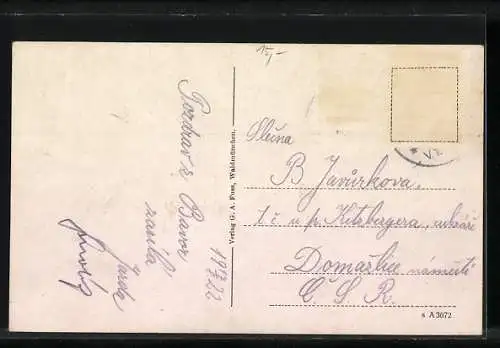 15,-
Pozdrav z Bavor
zasílá
Jarda
17/7 22
Verlag G. A. Fuss, Waldmünchen.
Slečna
B Javůrkova.
t. č. u p. Kitzbergera, cukráře
Domažlice náměstí
Č. S. R.
s A 3072